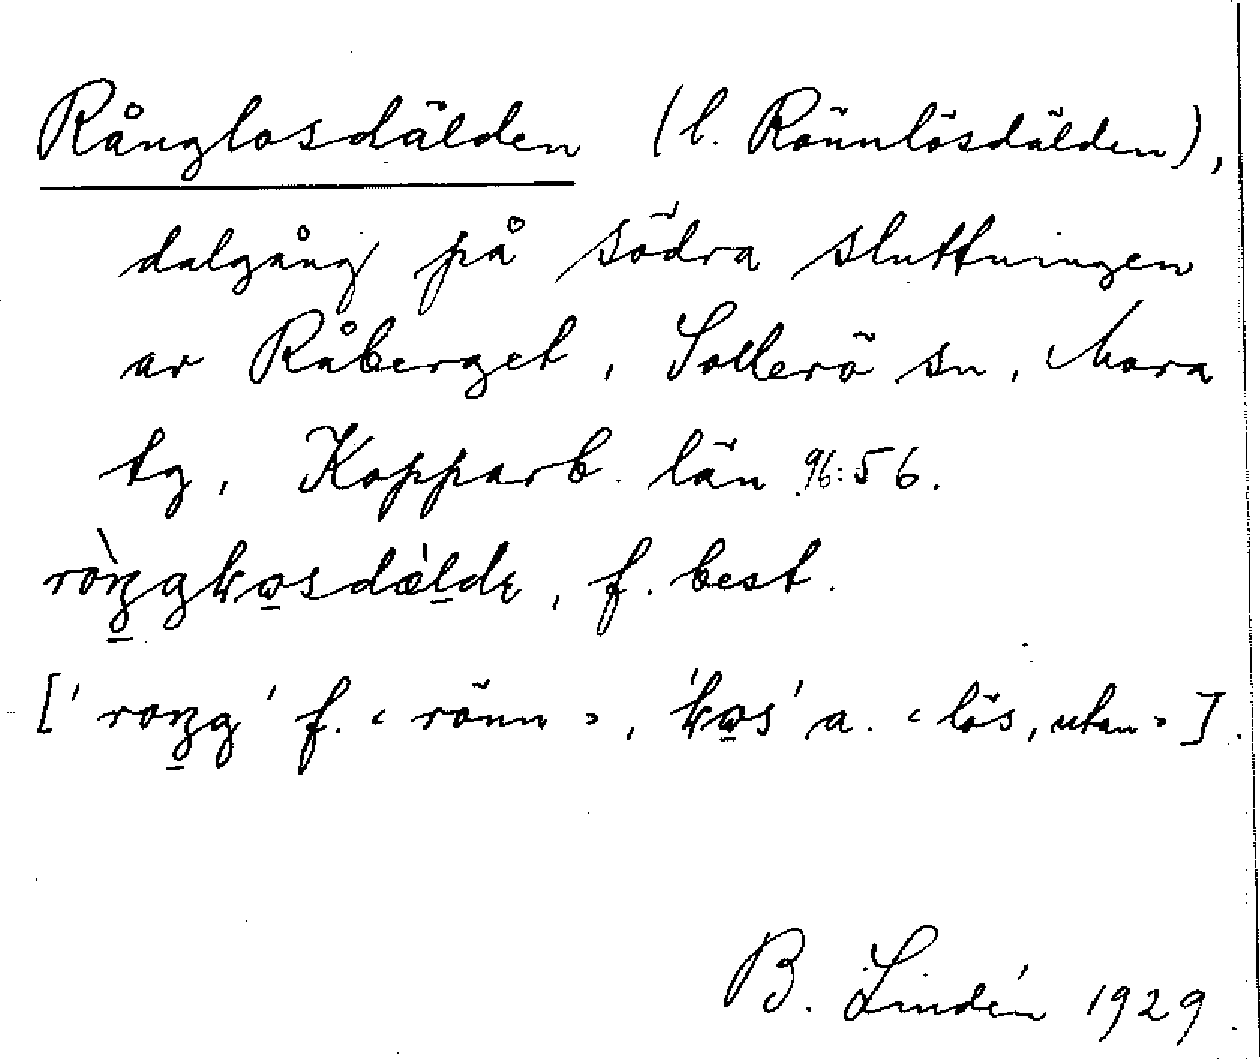 Rånglosdälden (l. Rönnlösdälden),
dalgång på södra sluttningen
av Råberget, Sollerö sn, Mora
tg, Kopparb. län 96:56.
f. best.
f. ‹ rönn ›, a. ‹ lös, utan › ].
B. Lindén 1929.